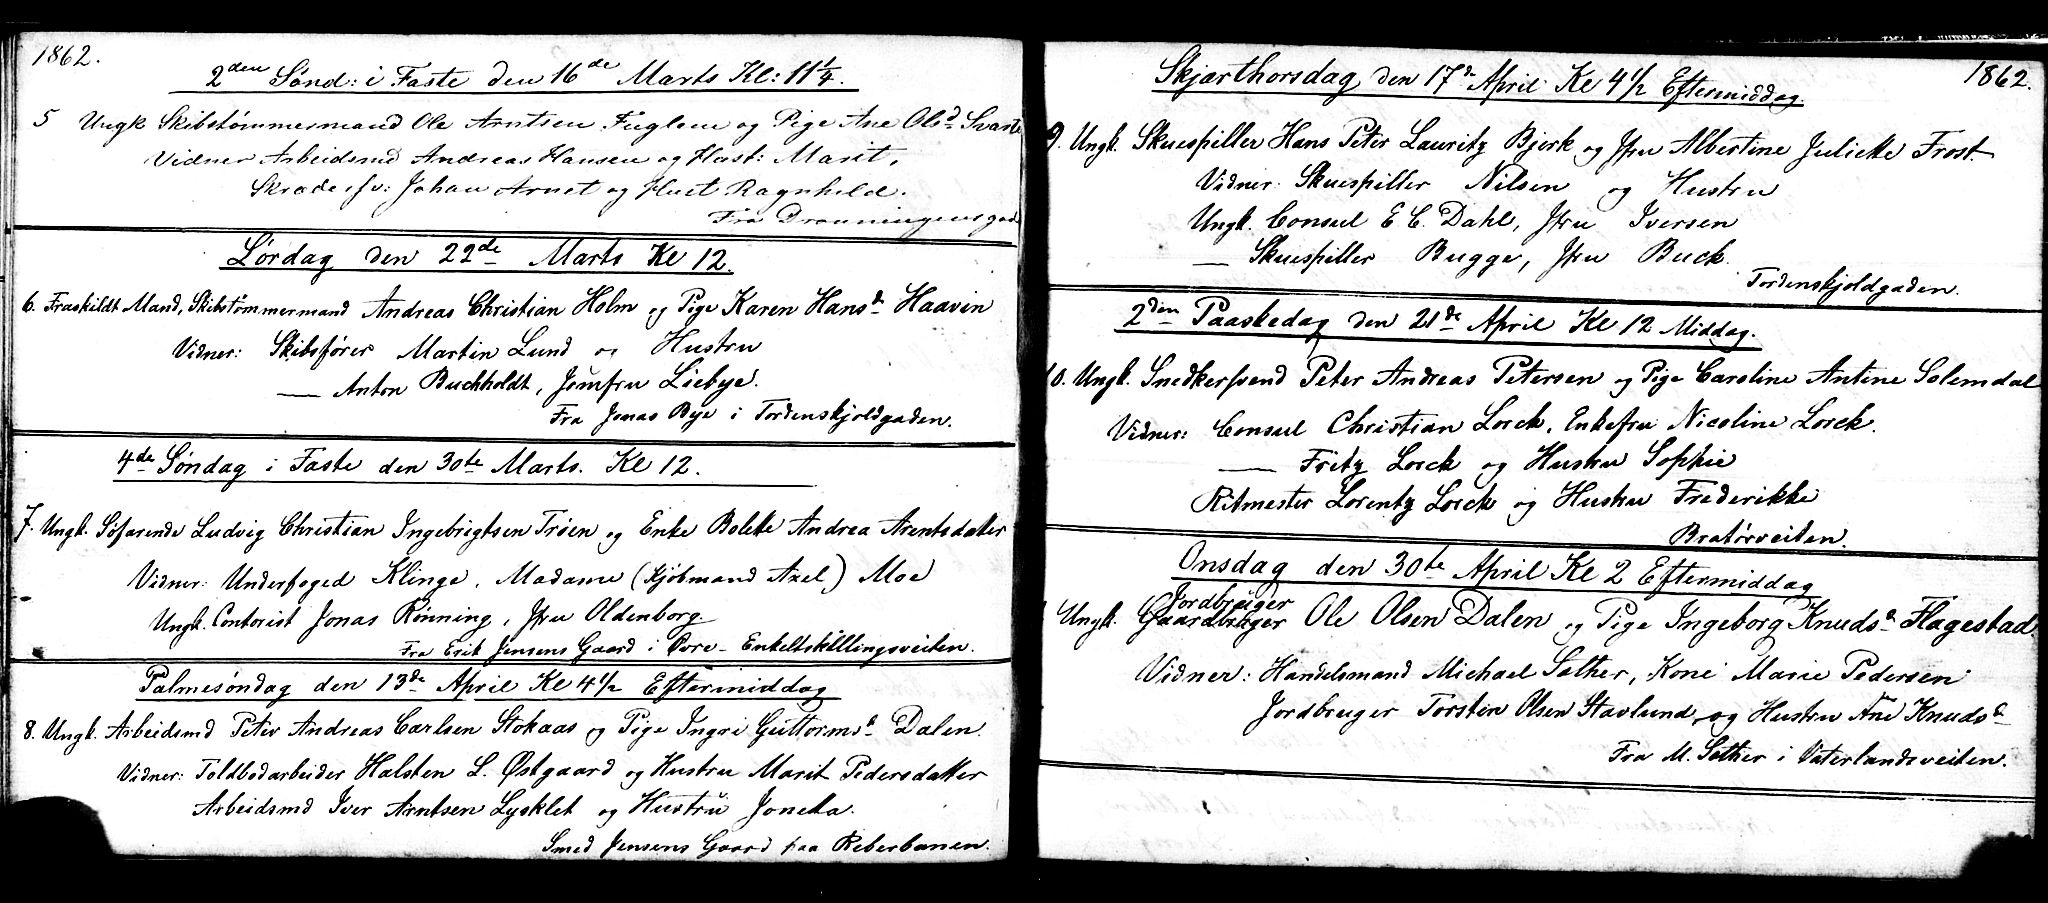 1862.
2den Sønd: i Faste den 16de Marts Kl: 11 1/4.
5 Ungk Skibstømmermand Ole Arntsen Fuglem og Pige Ane Olsd Svart
Vidner Arbeidsmd Andreas Hansen og Hust: Marit,
Johan Arnet og Hust Ragnhild.
Fra Dronningensgad
Lørdag den 22de Marts Kl 12.
6. Fraskildt Mand, Skibstømmermand Andreas Christian Holm og Pige Karen Hansd Haavin
Vidner: Skibsfører Martin Lund og Hustru
— Anton Buchholdt, Jomfru Liebye.
Fra Jonas Bye i Tordenskjoldgaden.
4de Søndag i Faste den 30te Marts. Kl 12.
7. Ungk. Søfarende Ludvig Christian Ingebrigtsen Trøen og Enke Bolette Andrea Arentsdatter
Vidner: Underfoged Klinge, Madame (Kjøbmand Axel) Moe
Ungk. Contorist Jonas Rønning, Jfru Oldenborg.
Fra Erik Jensens Gaard i Øvre - Enkeltskillingsveiten.
Palmesøndag den 13de April Kl 4 1/2 Eftermiddag
8. Ungk. Arbeidsmd Peter Andreas Carlsen Stokaas og Pige Ingri Guttormsd Dalen.
Vidner: Toldbodarbeider Halsten L. Østgaard og Hustru Marit Pedersdatter
Arbeidsmd Iver Arntsen Lysklet og Hustru Jonetta.
Smed Jensens Gaard paa Reberbanen.
Skjærthorsdag den 17de April Kl 4 1/2 Eftermiddag.
1862.
9. Ungk. Skuespiller Hans Peter Lauritz Bjerk og Jfru Albertine Juliette Frost
Vidner: Skuespiller Nilsen og Hustru
Ungk. Consul E C. Dahl, Jfru Iversen
— Skuespiller Bugge, Jfru Buck.
Tordenskjoldgaden.
2den Paaskedag den 21de April Kl 12 Middag.
10. Ungk. Snedkersvend Peter Andreas Petersen og Pige Caroline Antine Solemdal
Vidner: Consul Christian Lorck, Enkefru Nicoline Lorck.
— Fritz Lorck og Hustru Sophie
Ritmester Lorentz Lorck og Hustru Frederikke
Bratørveiten.
Onsdag den 30te April Kl 2 Eftermiddag
Jordbruger
Ungk. Gaardbruger Ole Olsen Dalen og Pige Ingeborg Knudsd Flagestad.
Vidner: Handelsmand Michael Sæther, Kone Marie Pedersen
Jordbruger Torsten Olsen Stavlund og Hustru Ane Knudsd
Fra M. Sæther i Vaterlandsveiten.